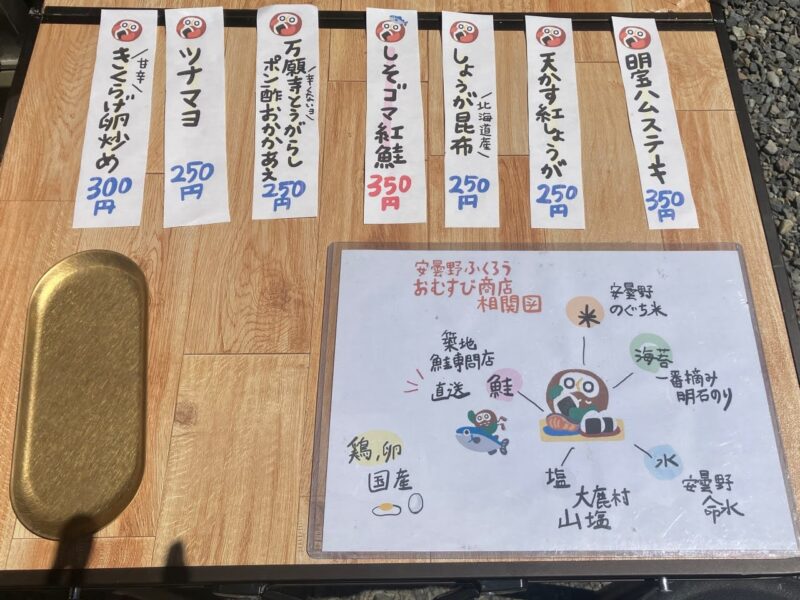 明宝ハムステーキ
350
円
天かす紅しょうが
250
円
しょうが昆布
北海道産
250
円
しそゴマ紅鮭
350
円
万願寺とうがらし
辛くないョ
ポン酢おかかあえ
250
円
ツナマヨ
250
円
甘辛
きくらげ卵炒め
300
円
安曇野ふくろう
おむすび商店
相関図
米
安曇野
のぐち米
海苔
一番摘み
明石のり
築地
鮭専門店
直送
鮭
水
安曇野
命水
塩
大鹿村
山塩
鶏、卵
国産